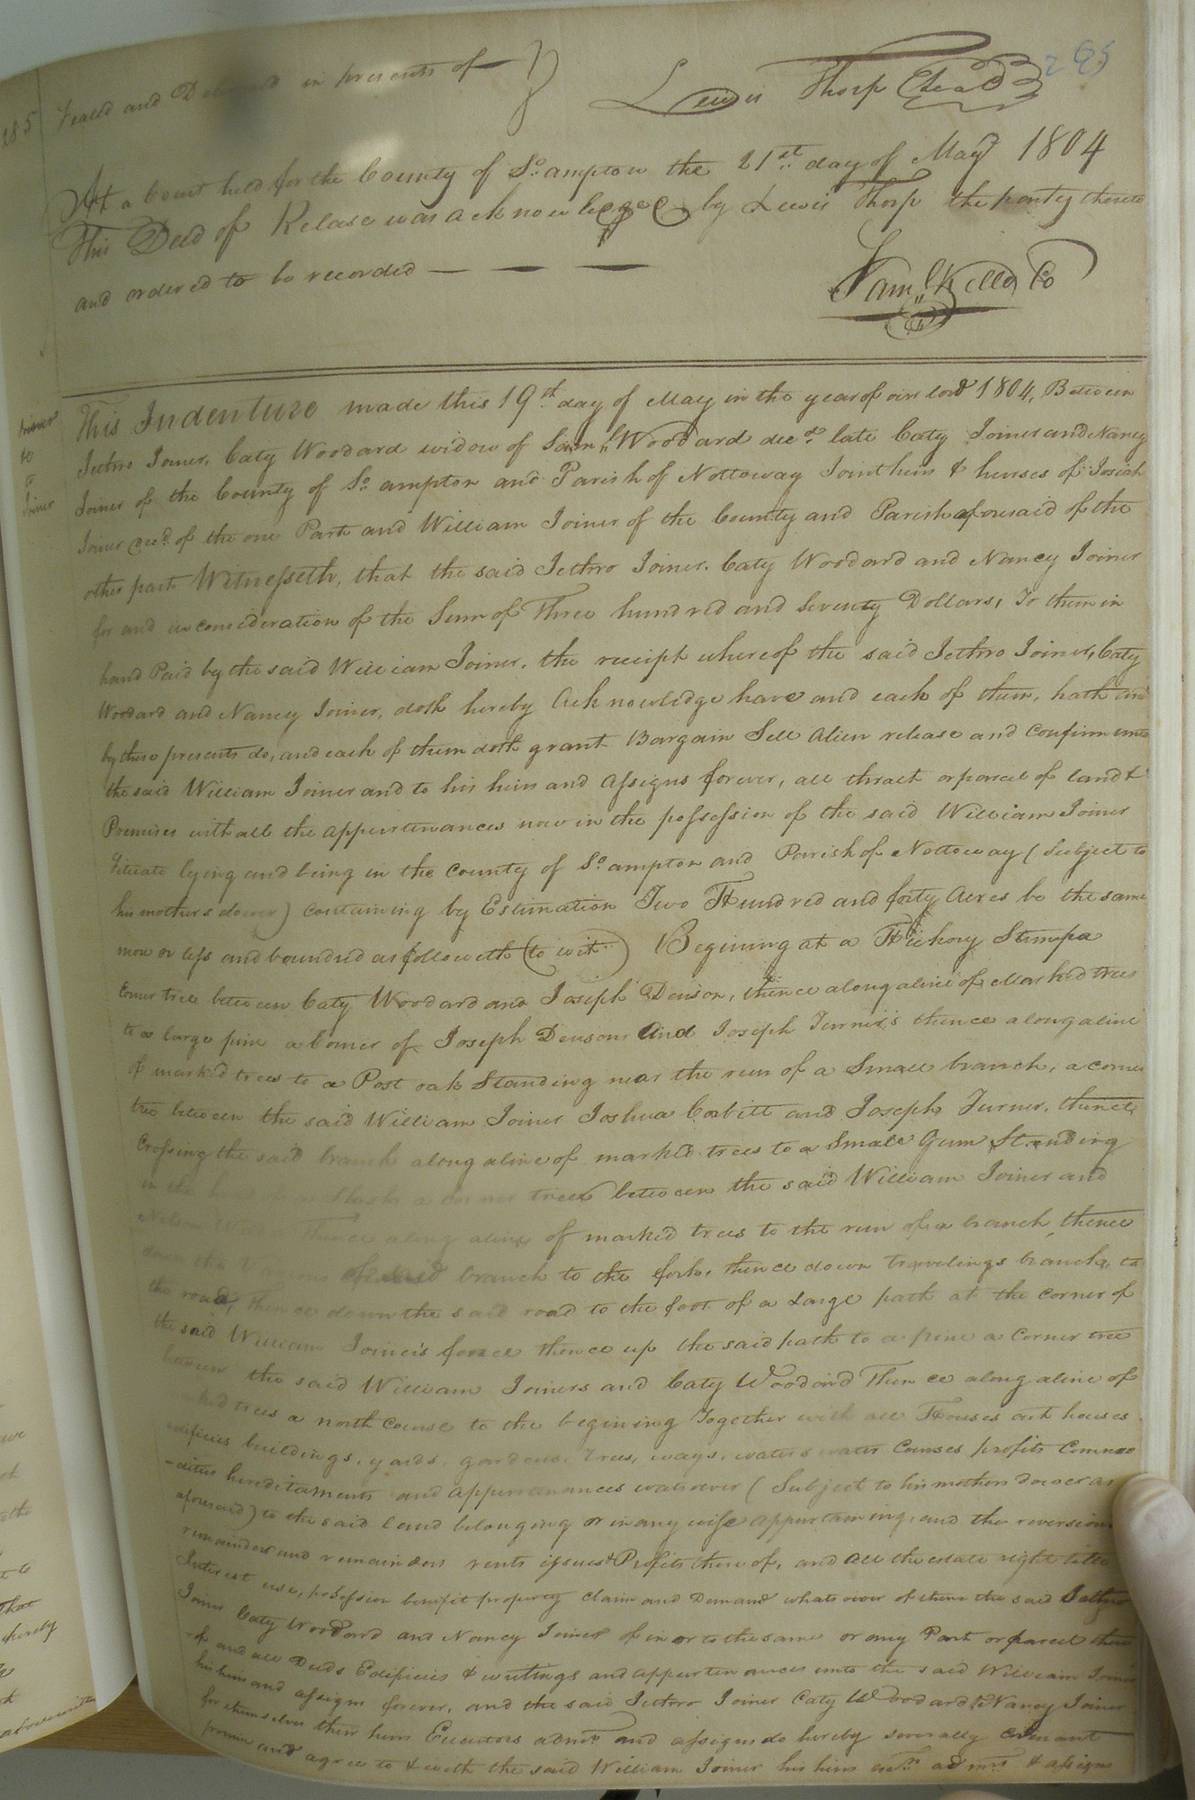 265
285
Seald and Delivered in presents of
Lewis Thorp (Seal)
At a Court held for the County of So. ampton the 21st day of May 1804
This Deed of Relase was acknowledged by Lewis Thorp the party thereto
and ordered to be recorded
Saml. Kello Co
Joiner
to
Joiner
This Indenture made this 19th day of May in the year of our lord 1804, Between
Jethro Joiner, Caty Woodard widow of Saml. Woodard decd. late Caty Joiner and Nancy
Joiner of the County of So. ampton and Parish of Nottoway Joint heirs & heirses of Josiah
Joiner decd. of the one Part and William Joiner of the County and Parish aforesaid of the
other part Witnesseth, that the said Jethro Joiner. Caty Woodard and Nancy Joiner
for and in consideration of the Sum of Three hundred and Seventy Dollars, To them in
hand Paid by the said William Joiner. the receipt whereof the said Jethro Joiner, Caty
Woodard and Nancy Joiner, doth hereby Acknowledge have and each of them, hath and
by these presents do, and each of them doth grant Bargain Sell Alien release and Confirm unto
the said William Joiner and to his heirs and Assigns forever, all thract or parcel of land &
Premises with all the appurtenances now in the possession of the said William Joiner
Situate lying and being in the County of So. ampton and Parrish of Nottoway (Subject to
his mothers dower) containing by Estimation Two Hundred and forty Acres be the same
more or less and boundred as followeth (to wit) Begining at a Hickory Stump a
Corner tree between Caty Woodard and Joseph Denson, thence along a line of Marked trees
to a large pine a Corner of Joseph Densons And Joseph Turner's thence along a line
of marked trees to a Post oak Standing near the run of a Small branch, a corner
tree between the said William Joiner Joshua Corbitt and Joseph Turner, thence
Crossing the said branch along a line of marked trees to a Small Gum Standing
in the a corner tree between the said William Joiner and
Thence along a line of marked trees to the run of a branch thence
down the of said branch to the fork, thence down travelings branch to
the road, thence down the said road to the foot of a Large path at the corner of
the said William Joiners fence thence up the said path to a pine a Corner tree
between the said William Joiners and Caty Woodard Thence along a line of
trees a north Course to the begining Together with all Houses out houses
edificies buildings, yards, gardens, Trees, ways, waters water Courses profits Commo
-dities hereditaments and appurtenances whatsoever (Subject to his mothers dower as
aforesaid) to the said land belonging or in any wise appurtaining, and the reversion
remainder and remainders rents issues & Profits thereof, and all the estate right title
Interest use, possession benefit property claim and Demand whatsoever of them the said Jethro
Joiner Caty Woodard and Nancy Joiner of in or to the same or any Part or parcel there
of and all Deeds Edificies & writings and appurtenances unto the said William Joiner
his heirs and assigns forever, and the said Jethro Joiner Caty Woodard & Nancy Joiner
for themselves their heirs Executors admrs and assigns do hereby severally covenant
promise and agree to & with the said William Joiner his heirs admrs & assigns